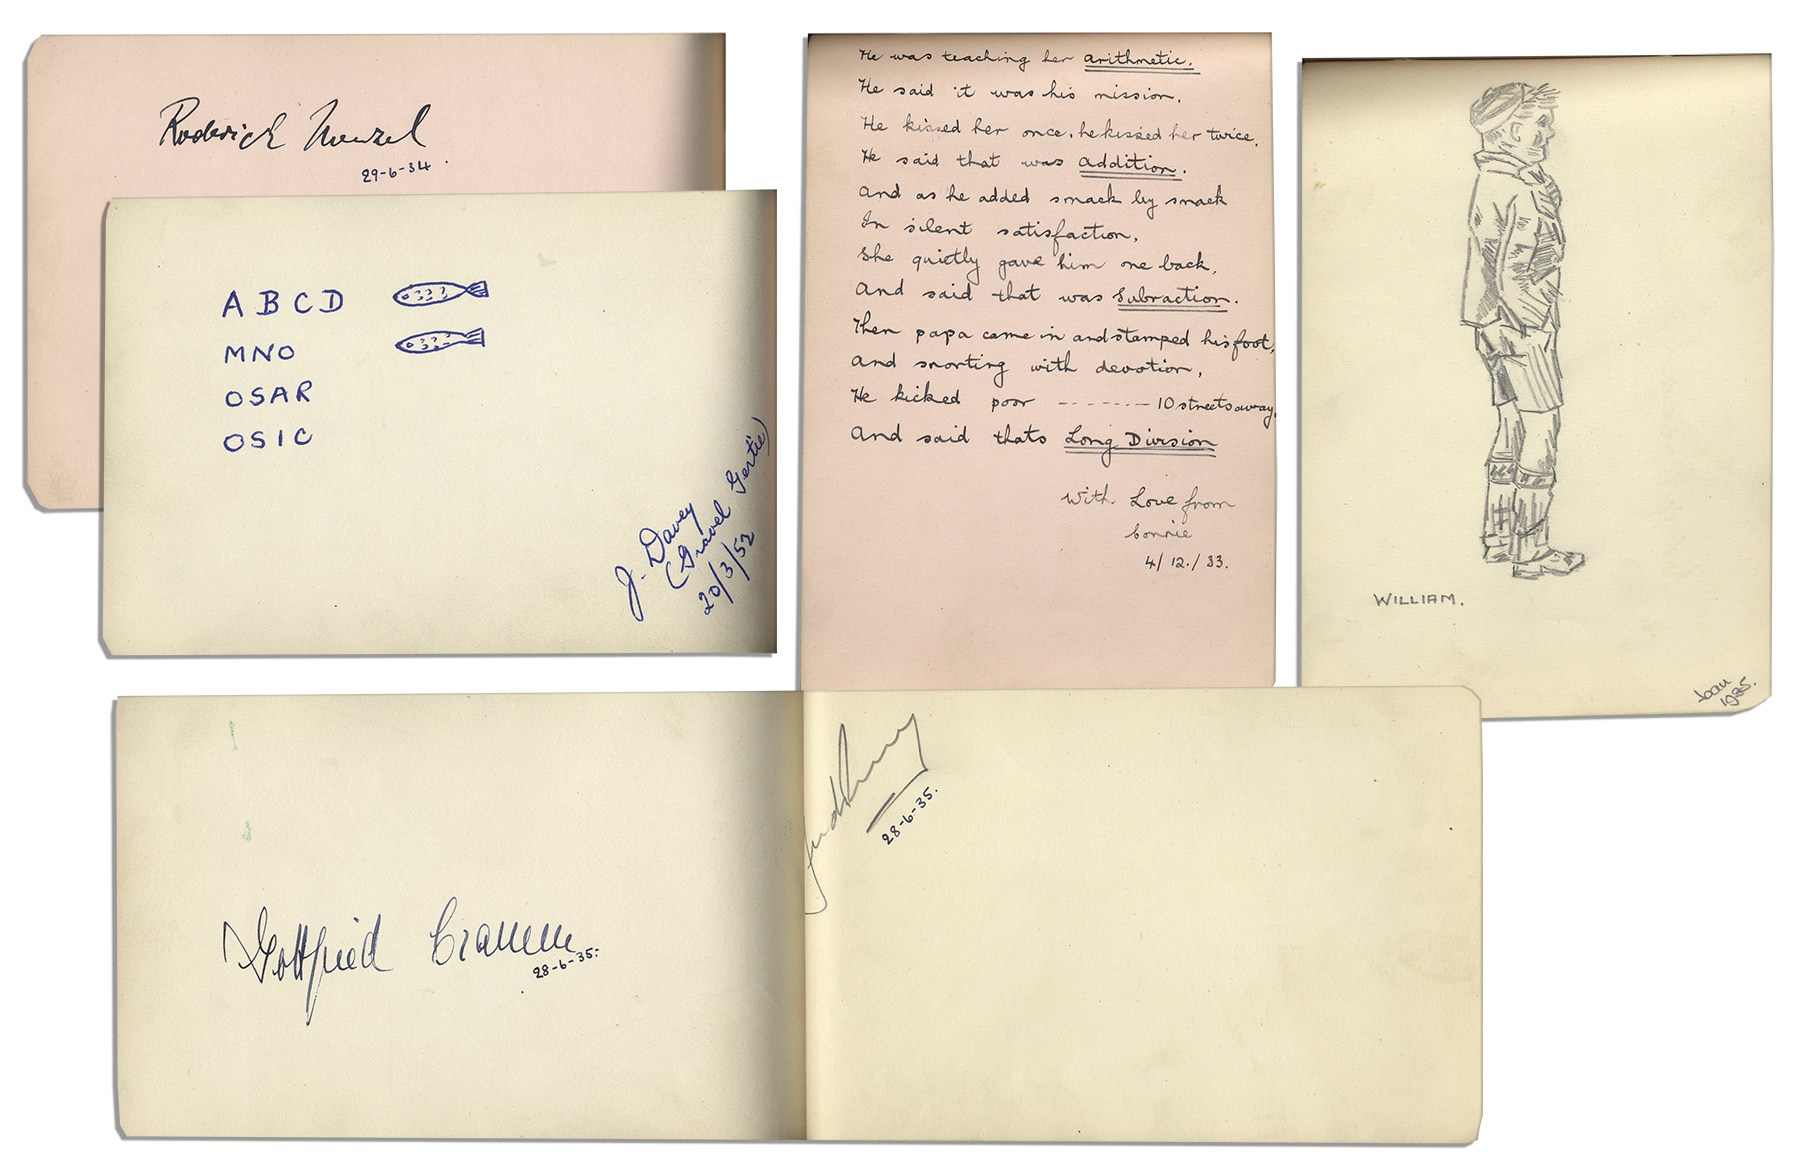 Roderick Menzel
29-6-34.
A B C D
MNO
OSAR
OSIC
J. Davey
(Gravel Gertie)
20/3/52
He was teaching her arithmetic.
He said it was his mission.
He kissed her once, he kissed her twice.
He said that was addition.
And as he added smack by smack
In silent satisfaction,
She quietly gave him one back,
And said that was Subraction.
Then papa came in and stamped his foot,
And snorting with devotion,
He kicked poor ------- 10 streets away,
And said thats Long Division
With Love from
Sonnie
4/12./33.
WILLIAM.
Joan
1935.
Gottfried Cramm
28-6-35.
28-6-35.